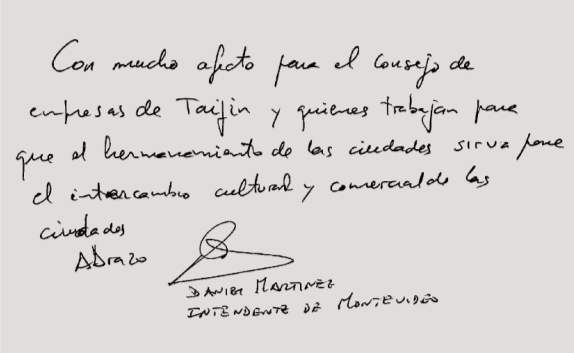 Con mucho afecto para el Consejo de
empresas de Taijin y quienes trabajan para
que el hermanamiento de las ciudades sirva para
el intercambio cultural y comercial de las
ciudades
Abrazo
DANIEL MARTINEZ
INTENDENTE DE MONTEVIDEO